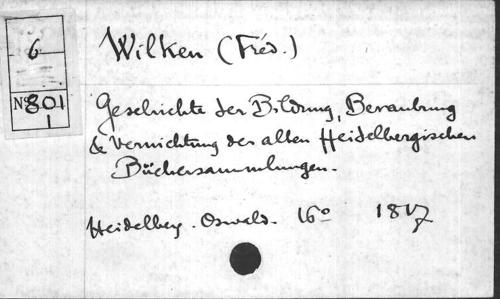 6
Nº 801
1
Wilken (Fréd.)
Geschichte der Bildung, Beraubung
& Vernichtung der alten Heidelbergischen
Büchersammlungen.
Heidelberg. Oswald. 16º 1817